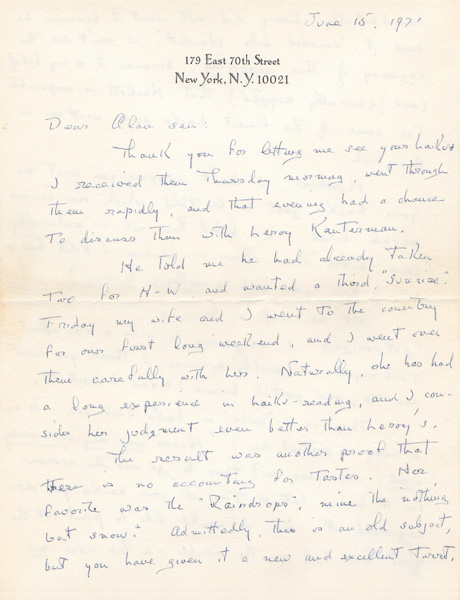 June 15, 197
179 East 70th Street
New York, N.Y. 10021
Dear Alan san:
Thank you for letting me see your haiku.
I received them Thursday morning, went through
them rapidly, and that evening had a chance
to discuss them with Leroy Kanterman.
He told me he had already taken
two for H-W and wanted a third, "Sunrise".
Friday my wife and I went to the country
for our first long weekend, and I went over
them carefully with her. Naturally, she has had
a long experience in haiku-reading, and I con-
sider her judgment even better than Leroy's.
The result was another proof that
there is no accounting for tastes. Her
favorite was the "Raindrops", mine the "nothing
but snow." Admittedly, this is an old subject,
but you have given it a new and excellent twist,